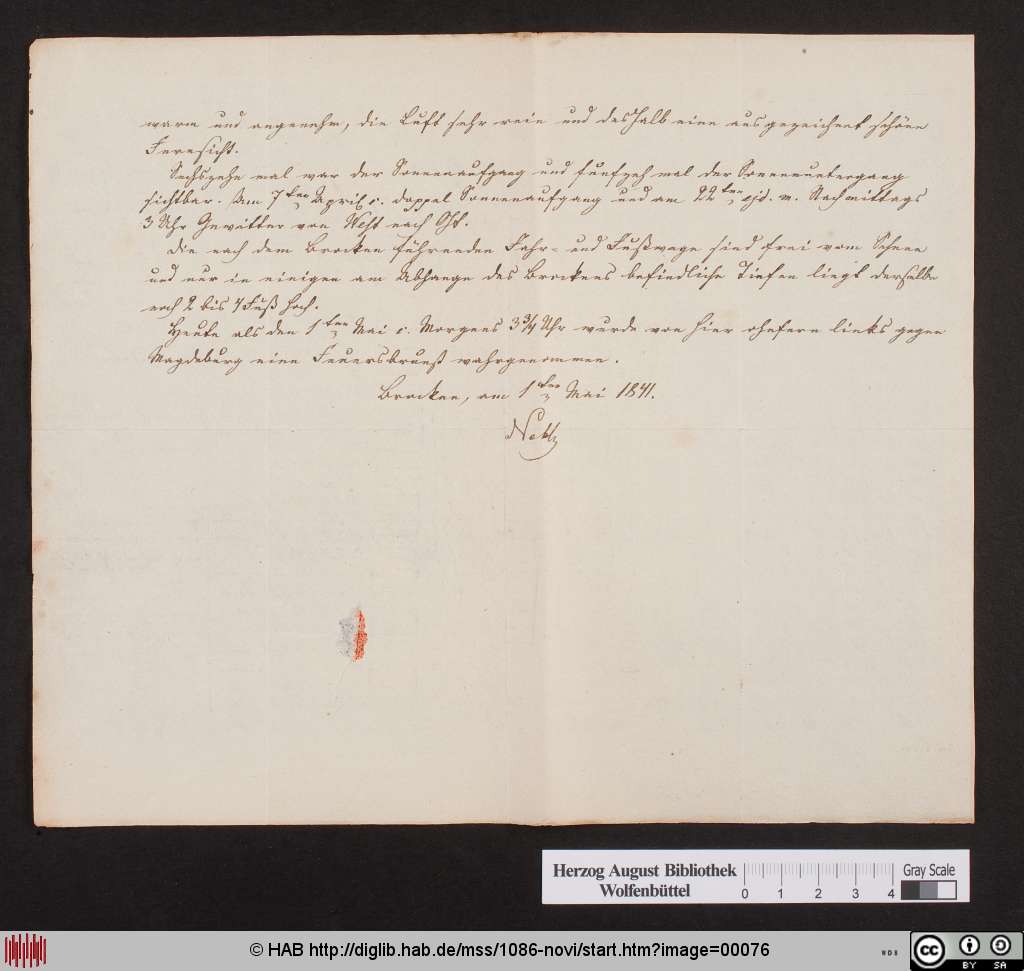 warm und angenehm, die Luft sehr rein und deshalb eine ausgezeichnet schöne
Fernsicht.
Sechszehn mal war der Sonnenaufgang und funfzeh mal der Sonnenuntergang
sichtbar. Am 7ten April c. doppel Sonnenaufgang und am 22ten ejd. m. Nachmittags
3 Uhr Gewitter von West nach Ost.
Die nach dem Brocken führenden Fahr- und Fußwege sind frei vom Schnee
und nur in einigen am Abhange des Brockens befindliche Tiefen liegt derselbe
noch 2 bis 4 Fuß hoch.
Heute als den 1ten Mai c. Morgens 3 3/4 Uhr wurde von hier ohnfern links gegen
Magdeburg eine Feuersbrunst wahrgenommen.
Brocken, am 1ten Mai 1841.
Herzog August Bibliothek
Wolfenbüttel
0 1 2 3 4
Gray Scale
© HAB http://diglib.hab.de/mss/1086-novi/start.htm?image=00076
WDB
cc BY SA